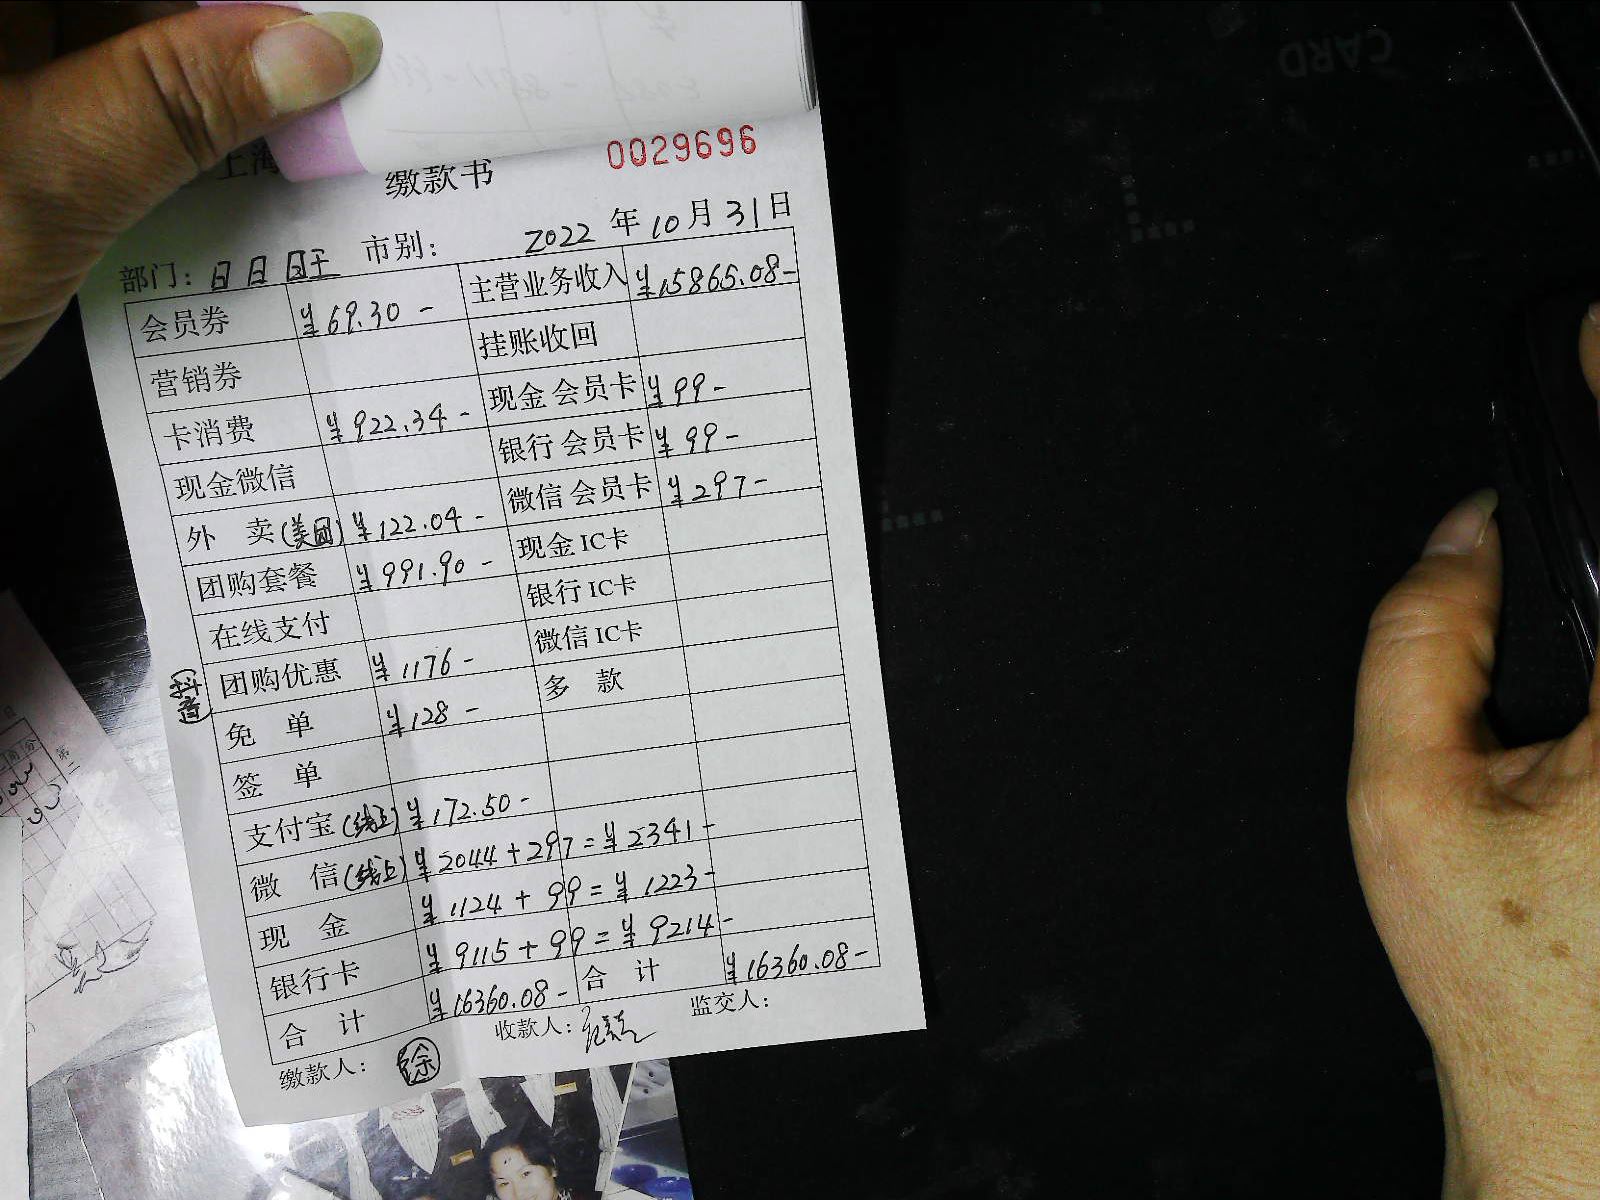 CARD
上海
0029696
缴款书
2022 年 10 月 31 日
部门: 日日 市别:
会员券 ¥69.30- 主营业务收入 ¥15865.08-
营销券 挂账收回
卡消费 ¥922.34- 现金会员卡 ¥99-
现金微信 银行会员卡 ¥99-
外 卖(美团) ¥122.04- 微信会员卡 ¥297-
团购套餐 ¥991.90- 现金IC卡
在线支付 银行IC卡
(抖音) 团购优惠 ¥1176- 微信IC卡
免 单 ¥128- 多 款
签 单
支付宝(线上) ¥172.50-
微 信(线上) ¥2044+297=¥2341-
现 金 ¥1124+99=¥1223-
银行卡 ¥9115+99=¥9214-
合 计 ¥16360.08- 合 计 ¥16360.08-
缴款人: 徐 收款人: 监交人:
角 分
第二